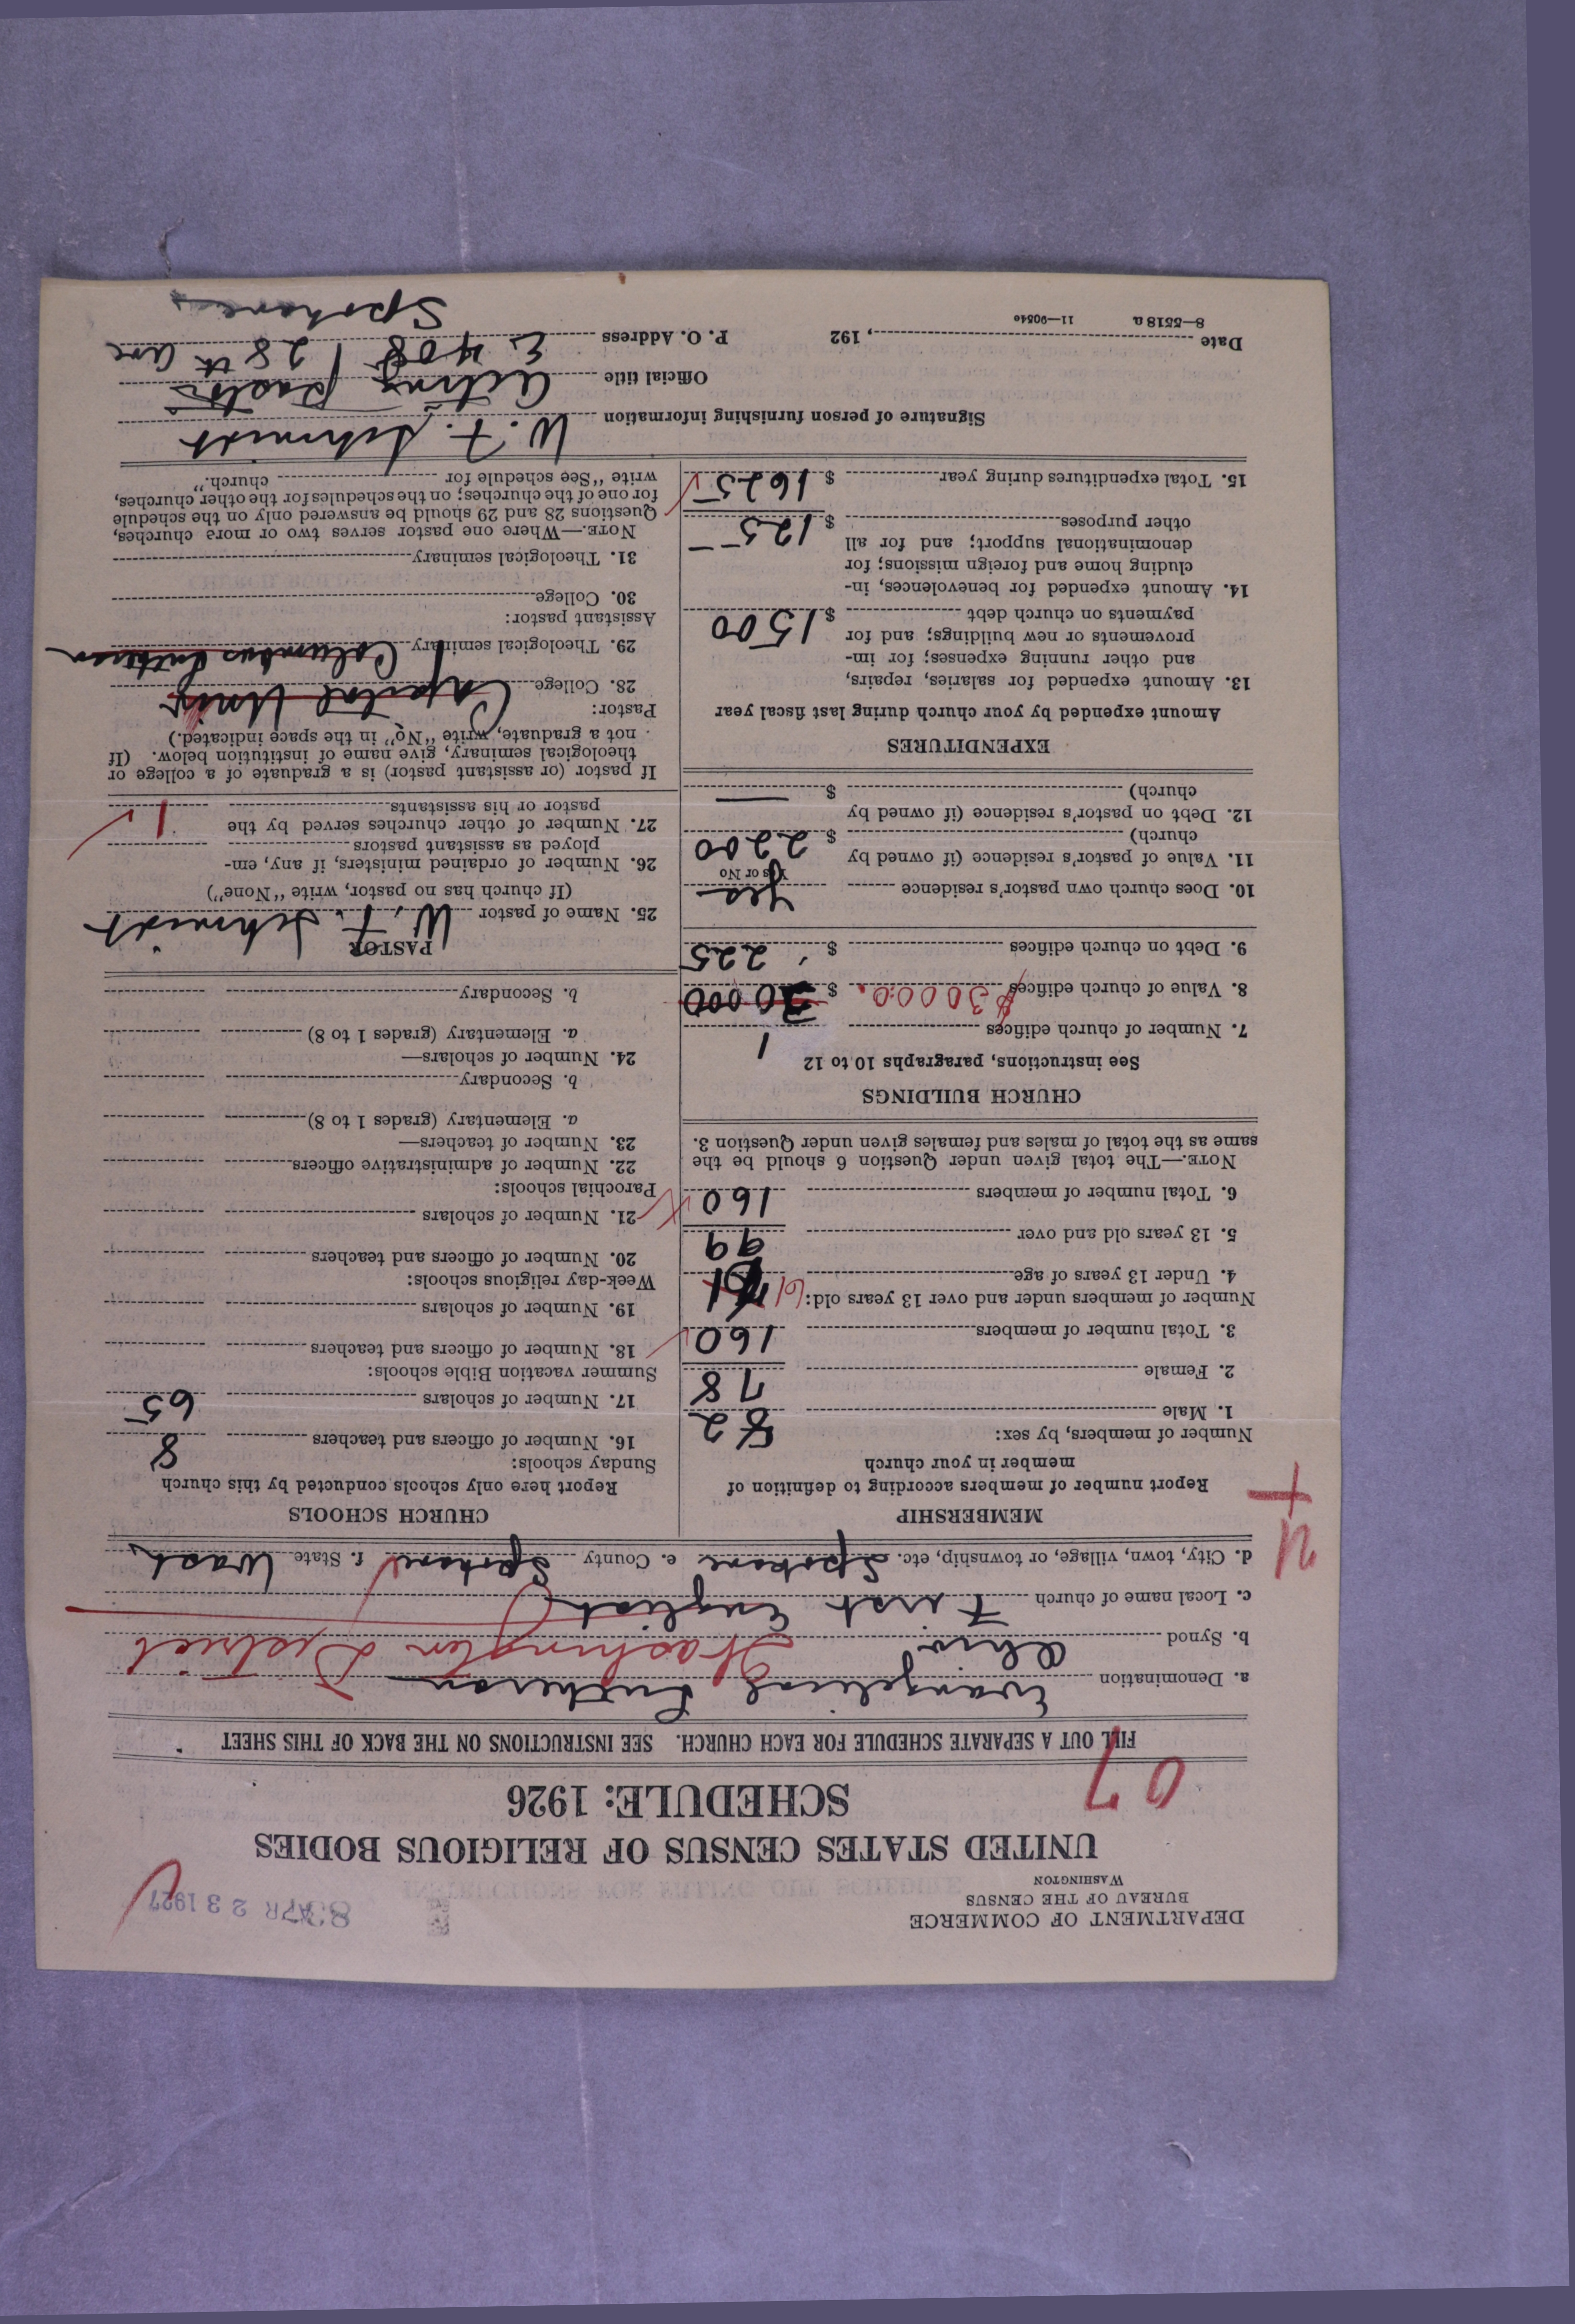 DEPARTMENT OF COMMERCE
BUREAU OF THE CENSUS
WASHINGTON
APR 23 1927
UNITED STATES CENSUS OF RELIGIOUS BODIES
SCHEDULE: 1926
07
FILL OUT A SEPARATE SCHEDULE FOR EACH CHURCH. SEE INSTRUCTIONS ON THE BACK OF THIS SHEET
a. Denomination Evangelical Lutheran
b. Synod Ohio Washington District
c. Local name of church First English
d. City, town, village, or township, etc. Spokane e. County Spokane f. State Wash
MEMBERSHIP
Report number of members according to definition of
member in your church
Number of members, by sex:
1. Male 82
2. Female 78
3. Total number of members 160
Number of members under and over 13 years old:
4. Under 13 years of age 61
5. 13 years old and over 99
6. Total number of members 160
NOTE.—The total given under Question 6 should be the
same as the total of males and females given under Question 3.
CHURCH BUILDINGS
See instructions, paragraphs 10 to 12
7. Number of church edifices 1
8. Value of church edifices $30000. $ 30000
9. Debt on church edifices $ 225
10. Does church own pastor's residence Yes
Yes or No
11. Value of pastor's residence (if owned by
church) $ 2200
12. Debt on pastor's residence (if owned by
church) $ —
EXPENDITURES
Amount expended by your church during last fiscal year
13. Amount expended for salaries, repairs,
and other running expenses; for im-
provements or new buildings; and for
payments on church debt $ 1500
14. Amount expended for benevolences, in-
cluding home and foreign missions; for
denominational support; and for all
other purposes $ 125
15. Total expenditures during year $ 1625
CHURCH SCHOOLS
Report here only schools conducted by this church
Sunday schools:
16. Number of officers and teachers 8
17. Number of scholars 65
Summer vacation Bible schools:
18. Number of officers and teachers
19. Number of scholars
Week-day religious schools:
20. Number of officers and teachers
21. Number of scholars
Parochial schools:
22. Number of administrative officers
23. Number of teachers—
a. Elementary (grades 1 to 8)
b. Secondary
24. Number of scholars—
a. Elementary (grades 1 to 8)
b. Secondary
PASTOR
25. Name of pastor W. F. Schmidt
(If church has no pastor, write "None")
26. Number of ordained ministers, if any, em-
ployed as assistant pastors
27. Number of other churches served by the
pastor or his assistants 1
If pastor (or assistant pastor) is a graduate of a college or
theological seminary, give name of institution below. (If
not a graduate, write "No" in the space indicated.)
Pastor:
28. College Capital Univ
29. Theological seminary Columbus Lutheran
Assistant pastor:
30. College
31. Theological seminary
NOTE.—Where one pastor serves two or more churches,
Questions 28 and 29 should be answered only on the schedule
for one of the churches; on the schedules for the other churches,
write "See schedule for church."
Signature of person furnishing information W. F. Schmidt
Official title Acting pastor
Date , 192 P. O. Address E 408 28th ave
Spokane
8—5518a 11—9054c